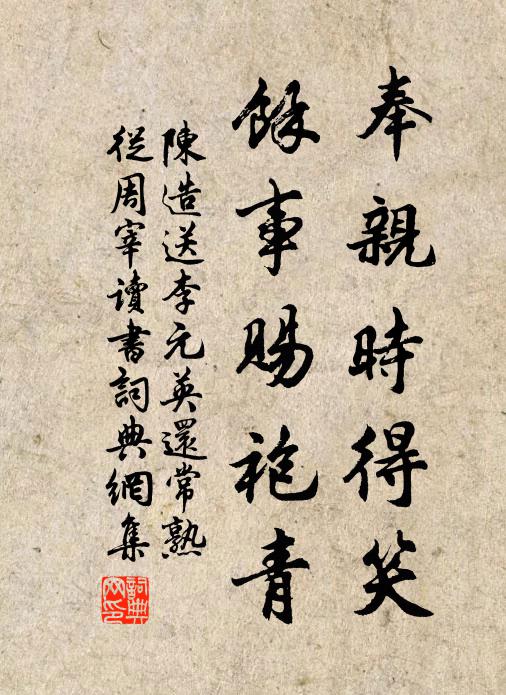 奉親時得笑
餘事賜袍青
陳造送李元英還常熟
從周宰讀書詞典網集
詞典
网印